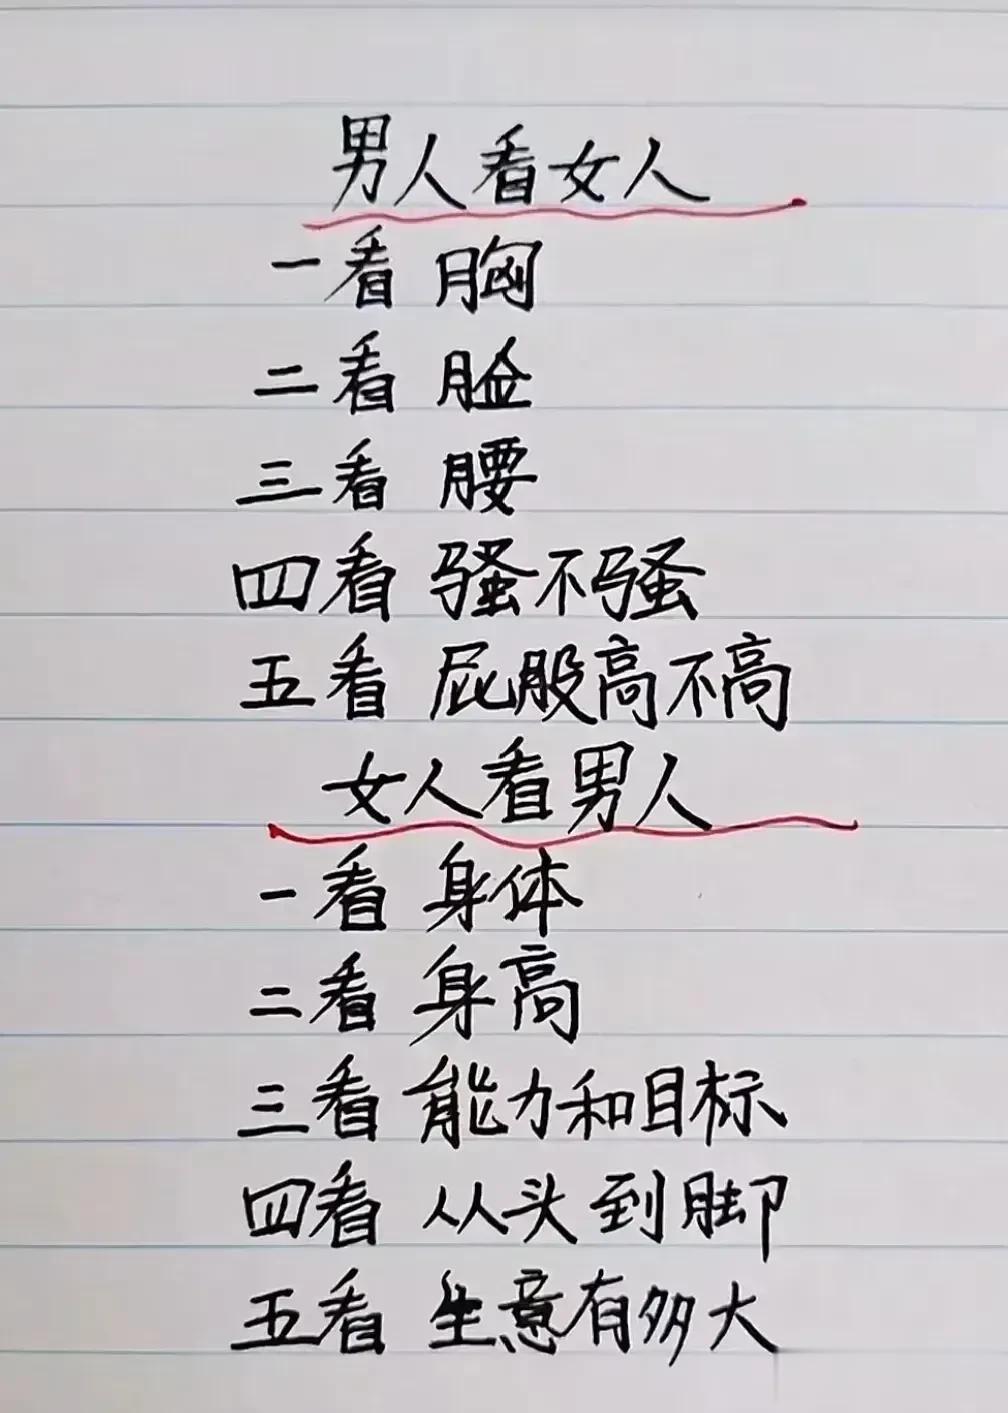 男人看女人
一看 胸
二看 脸
三看 腰
四看 骚不骚
五看 屁股高不高
女人看男人
一看 身体
二看 身高
三看 能力和目标
四看 从头到脚
五看 生意有多大